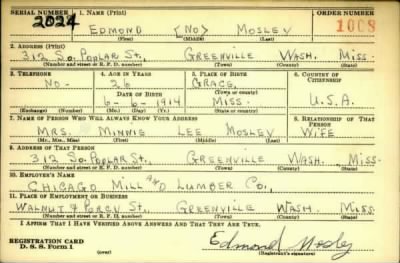 SERIAL NUMBER 1. NAME (Print) ORDER NUMBER
2024 EDMOND (NO) MOSLEY 1008
(First) (Middle) (Last)
2. ADDRESS (Print)
312 SO. POPLAR ST., GREENVILLE WASH. MISS.
(Number and street or R. F. D. number) (Town) (County) (State)
3. TELEPHONE 4. AGE IN YEARS 5. PLACE OF BIRTH 6. COUNTRY OF CITIZENSHIP
NO- 26 GRACE,
DATE OF BIRTH (Town or county)
6-6-1914 MISS. U.S.A.
(Exchange) (Number) (Mo.) (Day) (Yr.) (State or country)
7. NAME OF PERSON WHO WILL ALWAYS KNOW YOUR ADDRESS 8. RELATIONSHIP OF THAT PERSON
MRS. MINNIE LEE MOSLEY WIFE
(Mr., Mrs., Miss) (First) (Middle) (Last)
9. ADDRESS OF THAT PERSON
312 SO. POPLAR ST., GREENVILLE WASH. MISS.
(Number and street or R. F. D. number) (Town) (County) (State)
10. EMPLOYER'S NAME
CHICAGO MILL AND LUMBER CO.,
11. PLACE OF EMPLOYMENT OR BUSINESS
WALNUT & PERCY ST., GREENVILLE WASH. MISS.
(Number and street or R. F. D. number) (Town) (County) (State)
I AFFIRM THAT I HAVE VERIFIED ABOVE ANSWERS AND THAT THEY ARE TRUE.
REGISTRATION CARD
D. S. S. Form 1 (over) Edmond Mosley
(Registrant's signature)